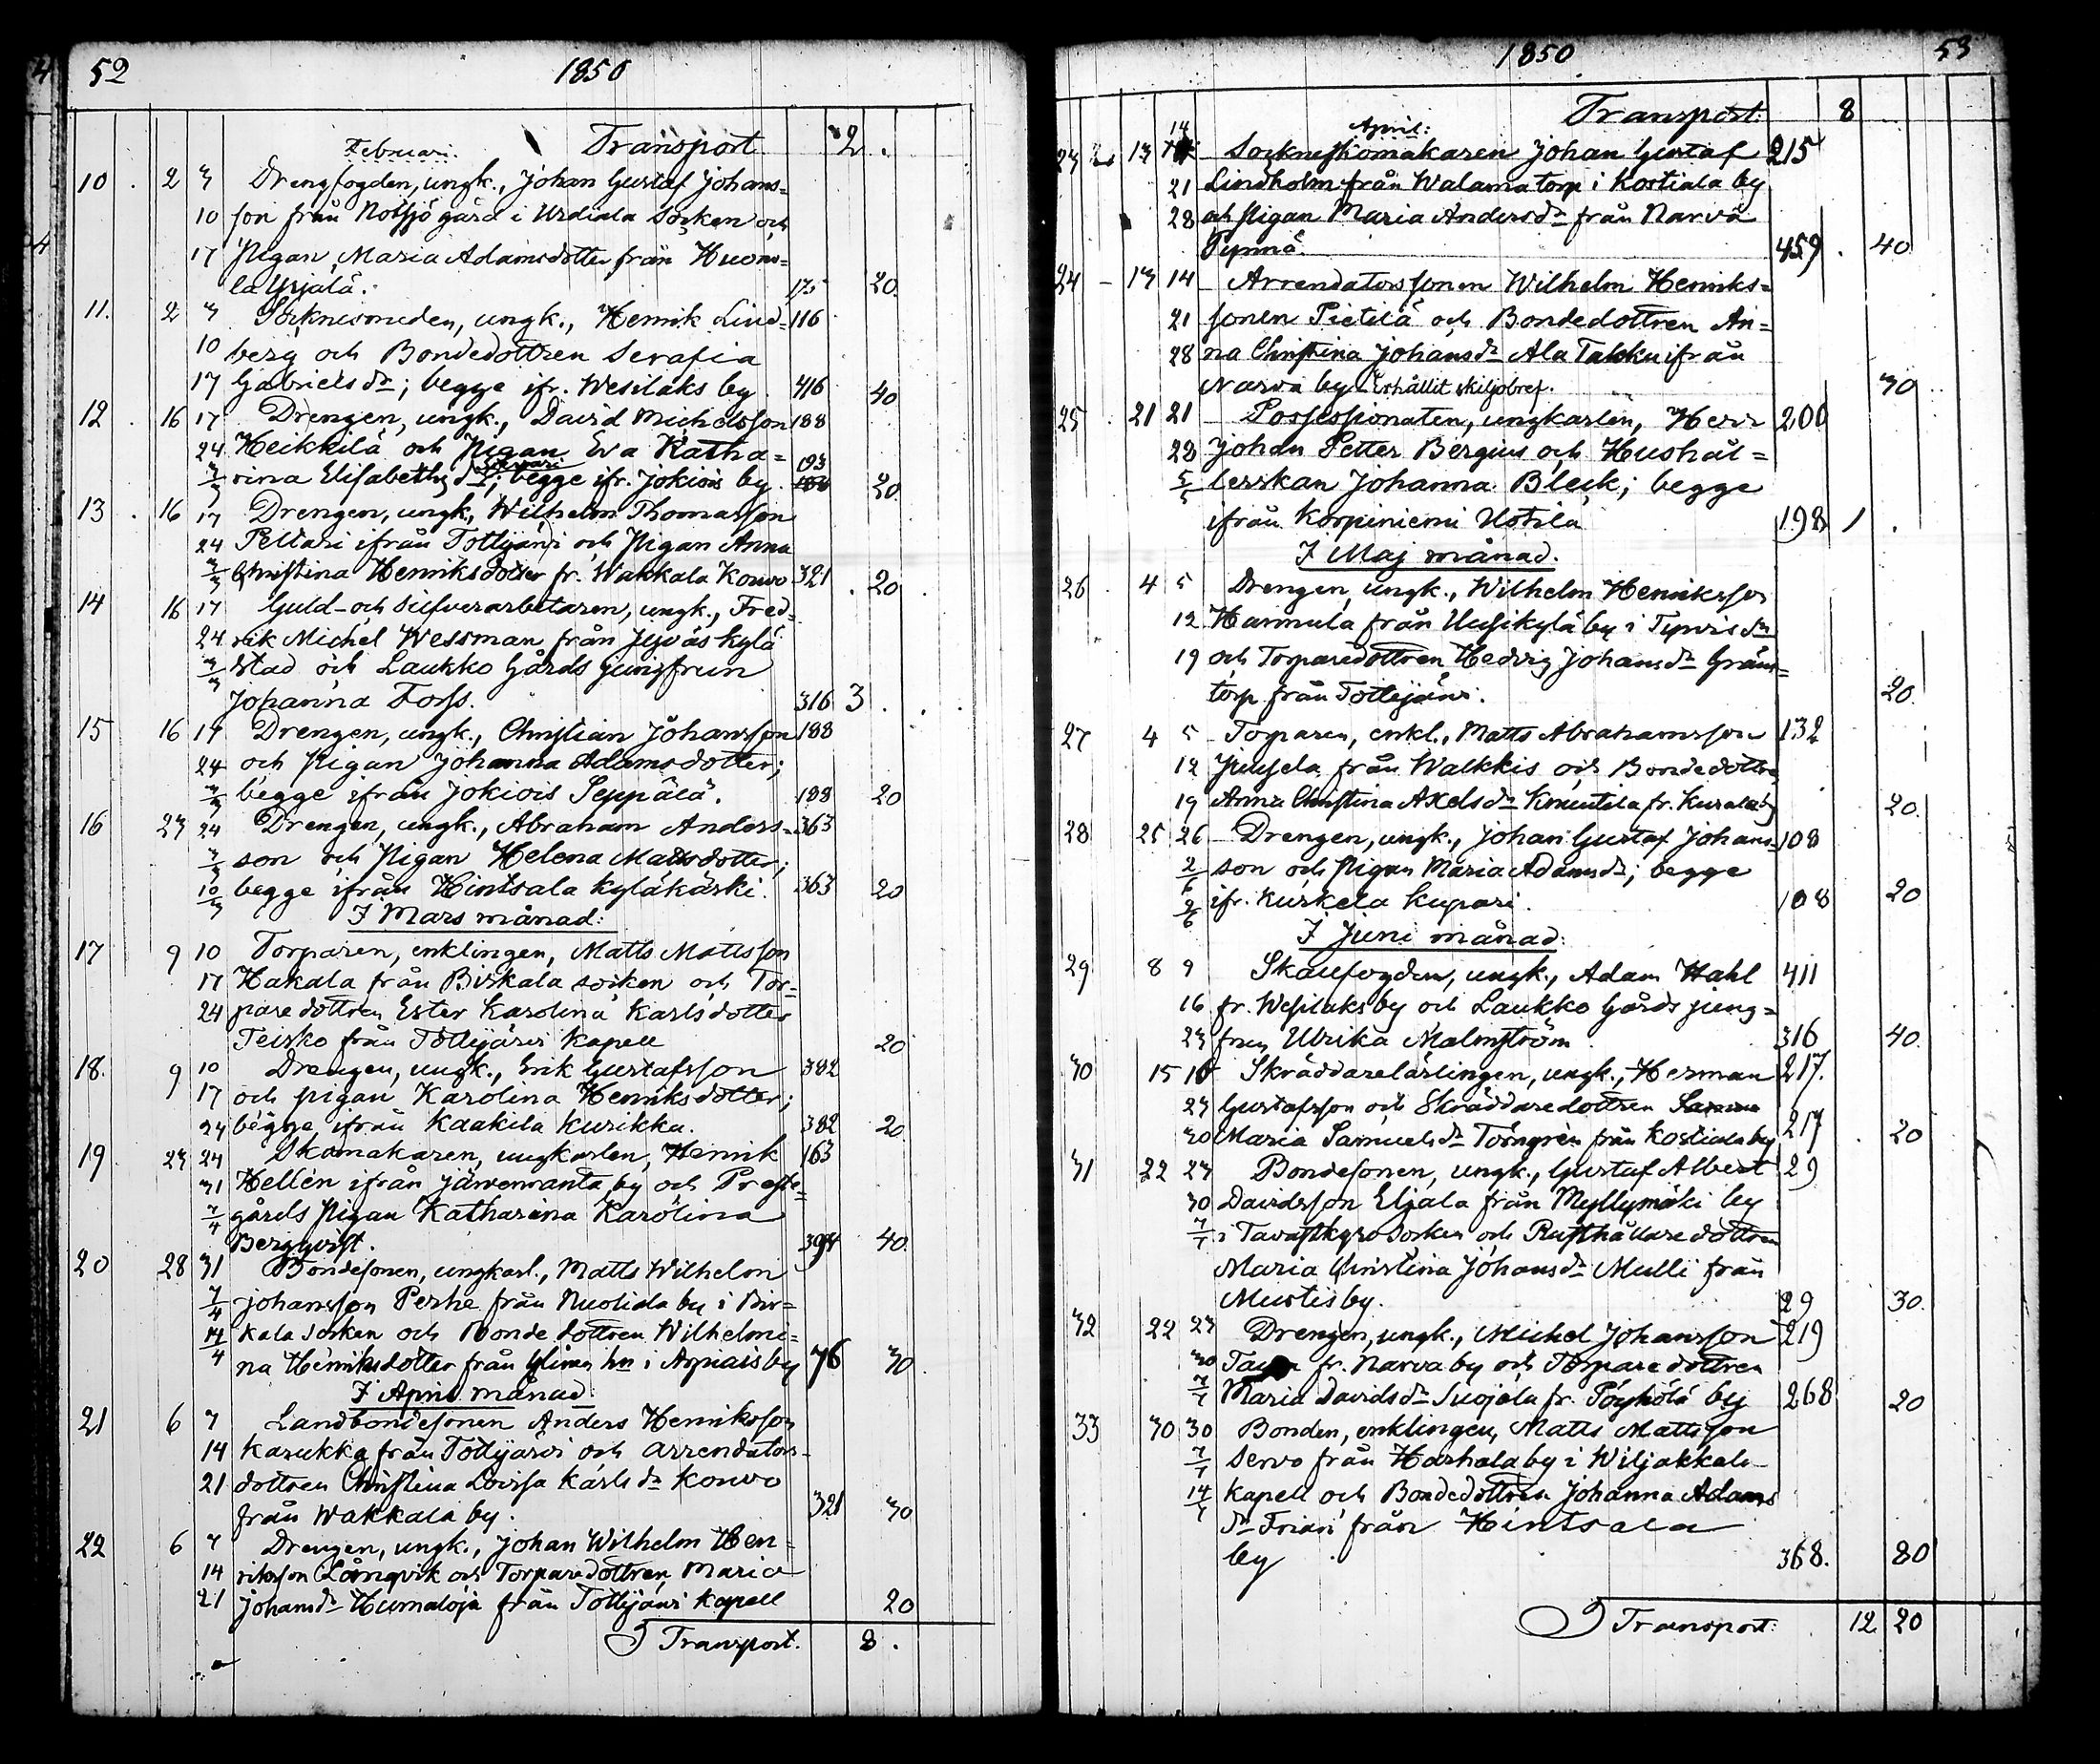 52
1850
Februari. Transport 2.
10. 2 3 Drengfogden, ungk., Johan Gustaf Johans=
10 son från Notsjö gård i Urdiala Socken och
17 Pigan Maria Adamsdotter från Huons=
la Yrjälä. 175 20.
11. 2 3 Socknesmeden, ungk., Henrik Lind= 116
10 berg och Bondedottren Serafia
17 Gabriels dr; begge ifr. Wesilaks by 416 40
12. 16 17 Drengen, ungk., David Michelsson 188
24 Heikkilä och Pigan Eva Katha= 193
3/3 rina Elisabeths dr; begge ifr. Jokiois by. 20.
13. 16 17 Drengen, ungk, Wilhelm Thomasson
24 Peltari ifrån Tottijärvi och Pigan Anna
3/3 Christina Henriksdotter fr. Wakkala Kouvo 321. 20.
14 16 17 Guld- och Silfverarbetaren, ungk., Fred=
24 rik Michel Wessman från Jyväskylä
3/3 Stad och Laukko Gårds jungfrun
Johanna Forss. 316 3.
15 16 17 Drengen, ungk., Christian Johansson 188
24 och Pigan Johanna Adamsdotter;
3/3 begge ifrån Jokiois Seppälä. 188 20
16 23 24 Drengen, ungk., Abraham Anders= 363
3/3 son och Pigan Helena Mattsdotter;
10/3 begge ifrån Hintsala Kyläkärki. 363 20
I Mars månad:
17 9 10 Torparen, enklingen, Matts Mattsson
17 Hakala från Birkala socken och Tor=
24 pare dottren Ester Karolina Karlsdotter
Teisko från Tottijärvi Kapell 20
18. 9 10 Drengen, ungk., Erik Gustafsson 382
17 och pigan Karolina Henriksdotter;
24 begge ifrån Kaakila Kurikka. 382 20
19. 23 24 Skomakaren, ungkarlen, Henrik 163
31 Hellén ifrån Järvenranta by och Preste=
7/4 gårds Pigan Katharina Karolina
Bergqvist. 394 40.
20 28 31 Bondesonen, ungkarl., Matts Wilhelm
7/4 Johansson Perhe från Nuoliala by i Bir=
14/4 kala Socken och Bonde dottren Wilhelmi=
na Henriksdotter från hn i Arpiais by 76 30
I April månad:
21 6 7 Landbondesonen Anders Henriksson
14 Karukka från Tottijärvi och arrendators=
21 dottren Christina Lovisa Karls dr Kouvo
från Wakkala by. 321 30
22 6 7 Drengen, ungk., Johan Wilhelm Hen=
14 riksson Lönnqvik och Torparedottren Maria
21 Johans dr Humaloja från Tottijärvi Kapell 20
Transport. 8.
1850
53
April: Transport: 8
23 13 14 Sockneskomakaren Johan Gustaf 215
21 Lindholm från Walama torp i Kostiala by
28 och Pigan Maria Anders dr från Narva
459. 40
24 - 13 14 Arrendatorssonen Wilhelm Henriks=
21 sonen Pietilä och Bondedottren An=
28 na Christina Johans dr Ala Takku ifrån
Narva by Erhållit skiljobref. 30
25 21 21 Possessionaten, ungkarlen, Herr 200
28 Johan Petter Bergius och Hushål=
5/5 lerskan Johanna Bleck; begge
ifrån Korpiniemi Uotila 198 1.
I Maj månad.
26. 4 5 Drengen, ungk., Wilhelm Henriksson
12 Hannula från Uusikylä by i Tyrvis Sn
19 och Torparedottren Hedvig Johans dr Gräns=
torp från Tottijärvi. 20.
27 4 5 Torparen, enkl., Matts Abrahamsson 132
12 Juusela från Walkkis och Bondedottren
19 Anna Christina Axels dr Knuutila fr. Kurala by 20.
28 25 26 Drengen, ungk., Johan Gustaf Johans= 108
2/6 son och Pigan Maria Adams dr; begge
9/6 ifr. Kurkela Kupari. 108 20
I Juni månad:
29 8 9 Skallfogden, ungk., Adam Wahl 411
16 fr. Wesilaks by och Laukko Gårds jung=
23 frun Ulrika Malmström 316 40.
30 15 16 Skräddarelärlingen, ungk., Herman 217.
23 Gustafsson och Skräddaredottren
30 Maria Samuels dr Törngren från Kostiala by 217. 20
31 22 23 Bondesonen, ungk., Gustaf Albert 29
30 Davidsson Eljala från Myllymäki by
7/7 i Tavastkyro Socken och Rusthållaredottren
Maria Christina Johans dr Mulli från
Murtis by. 29 30.
32 22 23 Drengen, ungk., Michel Johansson 219
30 fr. Narva by och Torparedottren
7/7 Maria Davids dr Suojola fr. Pöyhölä by 268 20
33 30 30 Bonden, enklingen, Matts Mattsson
7/7 Servo från Harhala by i Wiljakkala
14/7 Kapell och Bondedottren Johanna Adams
dr Frian från Hintsala
by 368. 80
Transport: 12 20